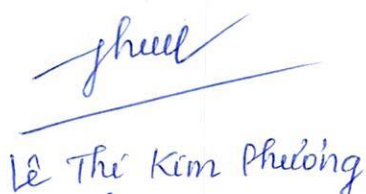 Lê Thị Kim Phương